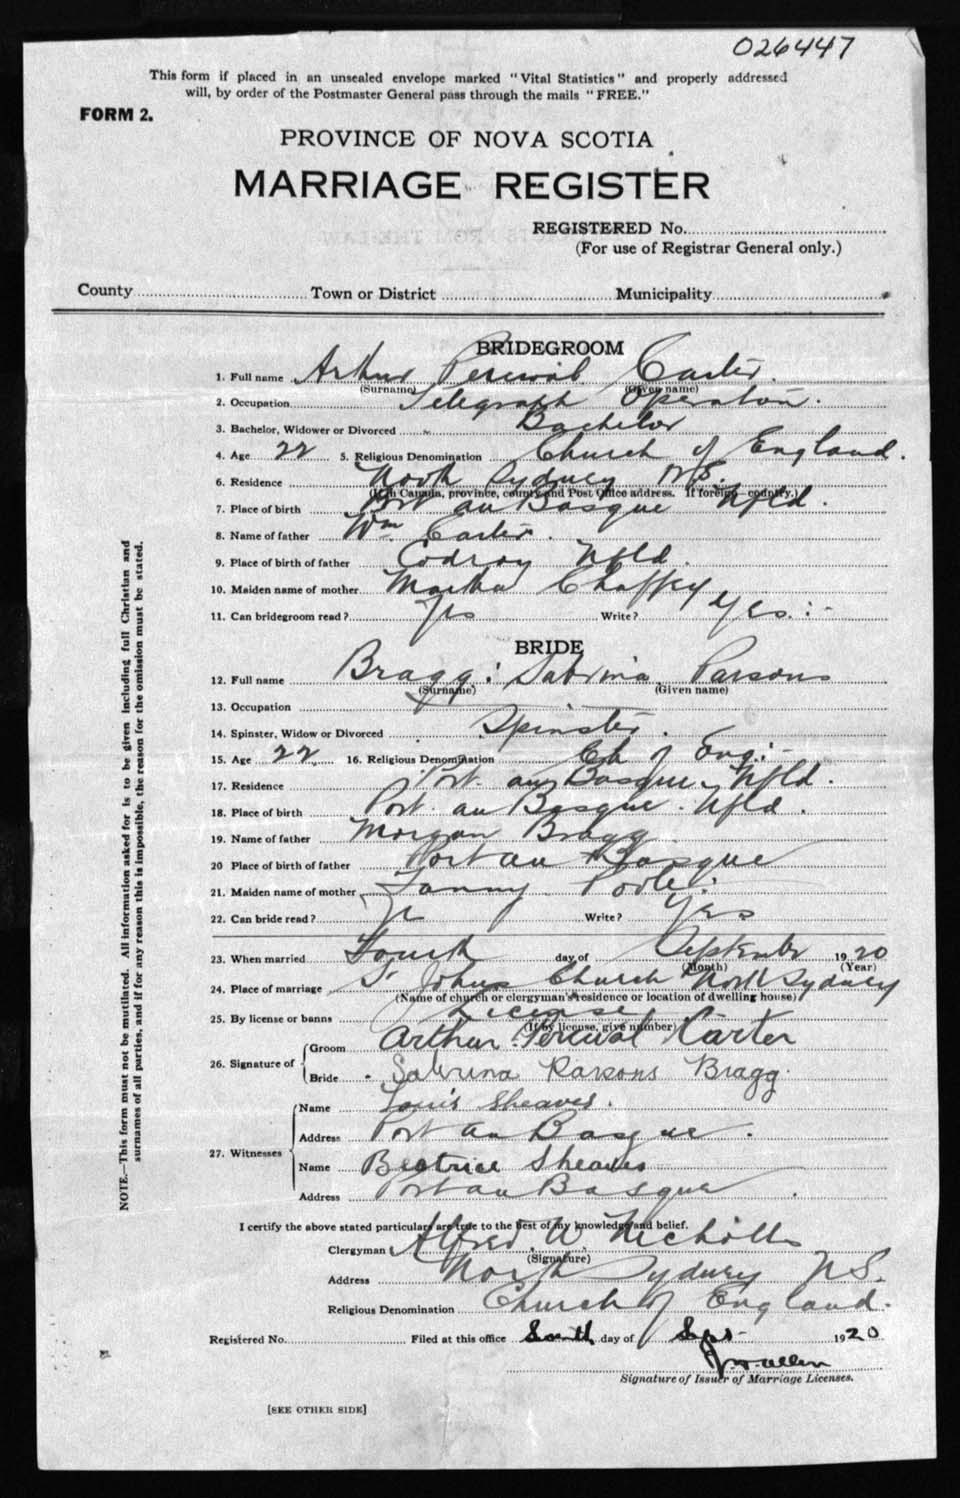 026447
This form if placed in an unsealed envelope marked "Vital Statistics" and properly addressed
will, by order of the Postmaster General pass through the mails "FREE."
FORM 2.
PROVINCE OF NOVA SCOTIA
MARRIAGE REGISTER
REGISTERED No.
(For use of Registrar General only.)
County Town or District Municipality
BRIDEGROOM
1. Full name Arthur Percival Carter.
(Surname) (Given name)
2. Occupation Telegraph Operator.
3. Bachelor, Widower or Divorced Bachelor
4. Age 22 5. Religious Denomination Church of England.
6. Residence North Sydney N.S.
(If in Canada, province, county and Post Office address. If foreign—country.)
7. Place of birth Port au Basque Nfld.
8. Name of father Wm Carter.
9. Place of birth of father Codroy Nfld.
10. Maiden name of mother Martha Chaffey
11. Can bridegroom read? Yes Write? Yes.:-
BRIDE
12. Full name Bragg: Sabrina Parsons
(Surname) (Given name)
13. Occupation
14. Spinster, Widow or Divorced Spinster.
15. Age 22. 16. Religious Denomination Ch of Eng:-
17. Residence Port au Basque, Nfld.
18. Place of birth Port au Basque. Nfld.
19. Name of father Morgan Bragg
20 Place of birth of father Port au Basque
21. Maiden name of mother Fanny Poole:
22. Can bride read? Yes Write? Yes
23. When married Fourth day of September 1920
(Month) (Year)
24. Place of marriage St Johns Church North Sydney
(Name of church or clergyman's residence or location of dwelling house)
25. By license or banns License
(If by license, give number)
26. Signature of Groom Arthur Percival Carter
Bride Sabrina Parsons Bragg.
27. Witnesses Name Louis Sheaves.
Address Port au Basque.
Name Beatrice Sheaves
Address Port au Basque
I certify the above stated particulars are true to the best of my knowledge and belief.
Clergyman Alfred W Nicholls
(Signature)
Address North Sydney N.S.
Religious Denomination Church of England.
Registered No. Filed at this office day of Sept 1920
Allen
Signature of Issuer of Marriage Licenses.
[SEE OTHER SIDE]
NOTE.—This form must not be mutilated. All information asked for is to be given including full Christian and
surnames of all parties, and if for any reason this is impossible, the reason for the omission must be stated.